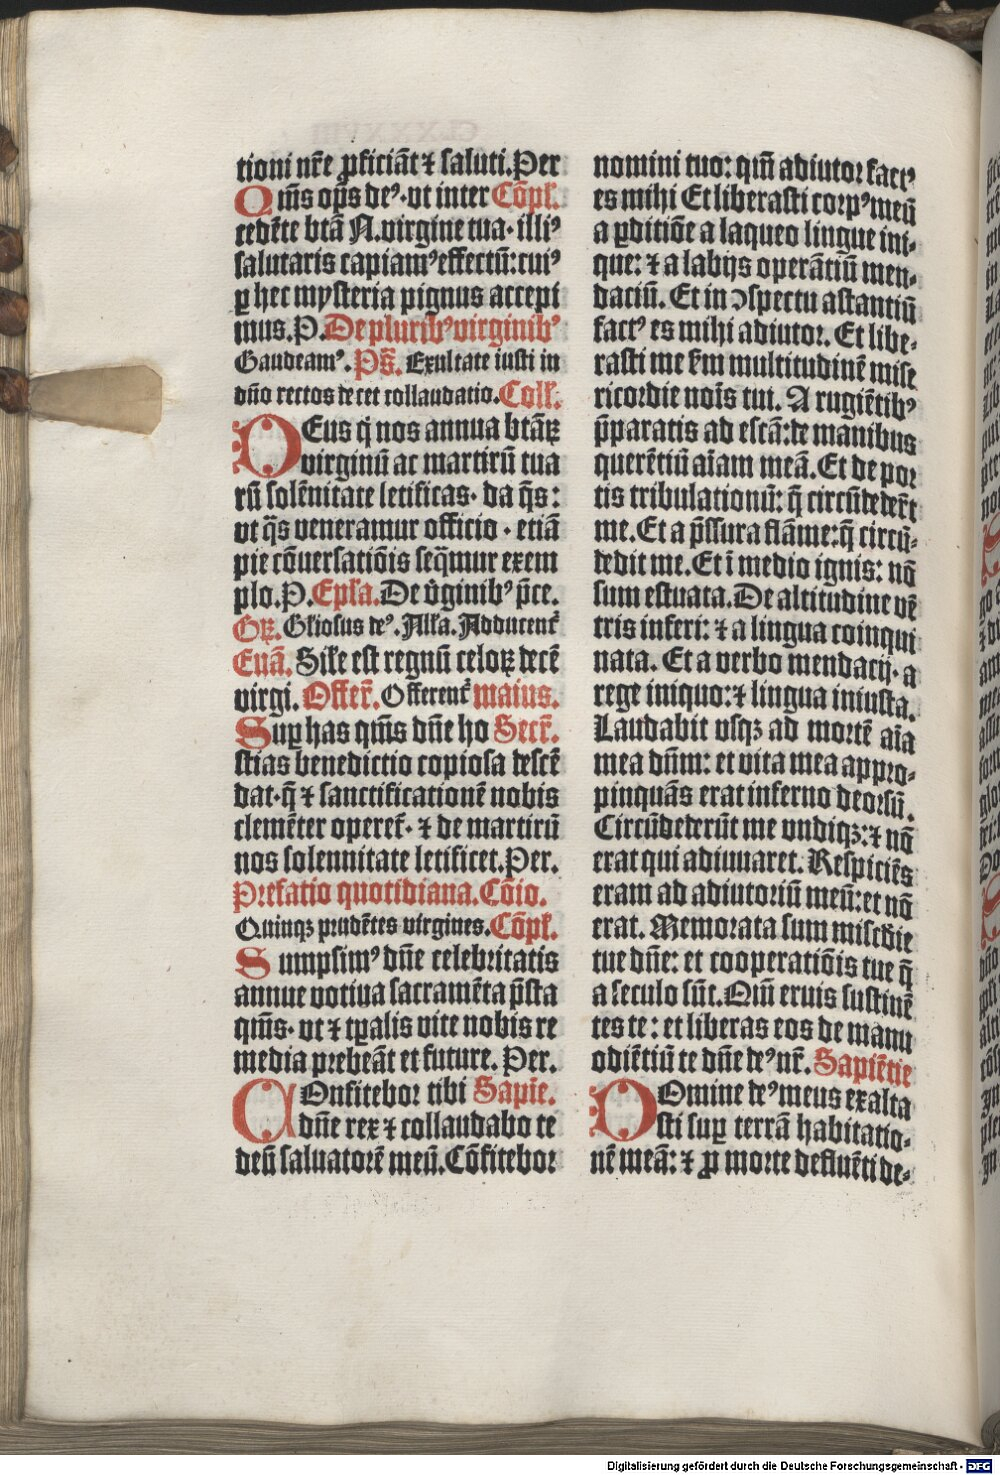 tioni nr̄e ꝓficiāt ⁊ saluti. Per
Qm̄s op̄s deꝰ· vt inter Cōpl̄.
cedēte btā N. virgine tua· illiꝰ
salutaris capiamꝰ effectū: cuiꝰ
ꝑ hec mysteria pignus accepi
mus. P. De pluribꝰ virginibꝰ
Gaudeamꝰ. Ps̄. Exultate iusti in
dn̄o rectos decet collaudatio. Coll̄.
DEus q̄ nos annua btāꝝ
virginū ac martirū tua
rū solēnitate letificas· da q̄s:
vt q̄s veneramur officio· etiā
pie cōuersatiōis seq̄mur exem
plo. P. Epl̄a. De v̄ginibꝰ p̄ce.
Gꝝ. Gl̄iosus deꝰ. All̄a. Adducent̄
Euā. Sil̄e est regnū celoꝝ decē
virgi. Offer̄. Offerent̄ maius.
Suꝑ has qm̄s dn̄e ho Secr̄.
stias benedictio copiosa descē
dat· q̄ ⁊ sanctificationē nobis
clemēter operet̄· ⁊ de martirū
nos solennitate letificet. Per.
Prefatio quotidiana. Cōio.
Quinqꝫ prudētes virgines. Cōpl̄.
Sumpsimꝰ dn̄e celebritatis
annue votiua sacramēta p̄sta
qm̄s· vt ⁊ tꝑalis vite nobis re
media prebeāt et future. Per.
COnfitebor tibi Sapiē.
dn̄e rex ⁊ collaudabo te
deū saluatorē meū. Cōfitebor
nomini tuo: qm̄ adiutor factꝰ
es mihi Et liberasti corpꝰ meū
a ꝑditiōe a laqueo lingue ini-
que: ⁊ a labijs operātiū men-
daciū. Et in ↄspectu astantiū
factꝰ es mihi adiutor. Et libe-
rasti me ẜm multitudinē mise
ricordie nois̄ tui. A rugiētibꝰ
p̄paratis ad escā: de manibus
querētiū aīam meā. Et de por
tis tribulationū: q̄ circūdeder̄t
me. Et a p̄ssura flāme: q̄ circū-
dedit me. Et ī medio ignis: nō
sum estuata. De altitudine vē
tris inferi: ⁊ a lingua coinqui
nata. Et a verbo mendacij· a
rege iniquo: ⁊ lingua iniusta.
Laudabit vsqꝫ ad mortē aīa
mea dn̄m: et vita mea appro-
pinquās erat inferno deorsū.
Circūdederūt me vndiqꝫ: ⁊ nō
erat qui adiuuaret. Respiciēs
eram ad adiutoriū meū: et nō
erat. Memorata sum misc̄die
tue dn̄e: et cooperatiōis tue q̄
a seculo sūt. Qm̄ eruis sustinē
tes te: et liberas eos de manu
odiētiū te dn̄e deꝰ nr̄. Sapiētie
DOmine deꝰ meus exalta
sti suꝑ terrā habitatio-
nē meā: ⁊ ꝓ morte defluēti de-
Digitalisierung gefördert durch die Deutsche Forschungsgemeinschaft - DFG